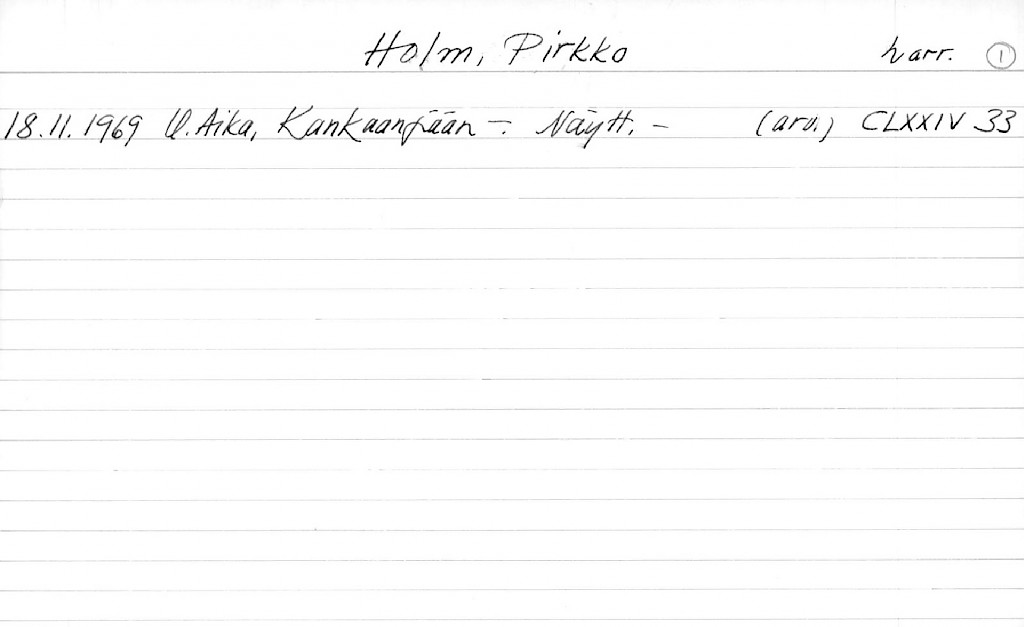 Holm, Pirkko harr. 1
18.11.1969 U.Aika, Kankaanpään -: Näytt. - (arv.) CLXXIV 33